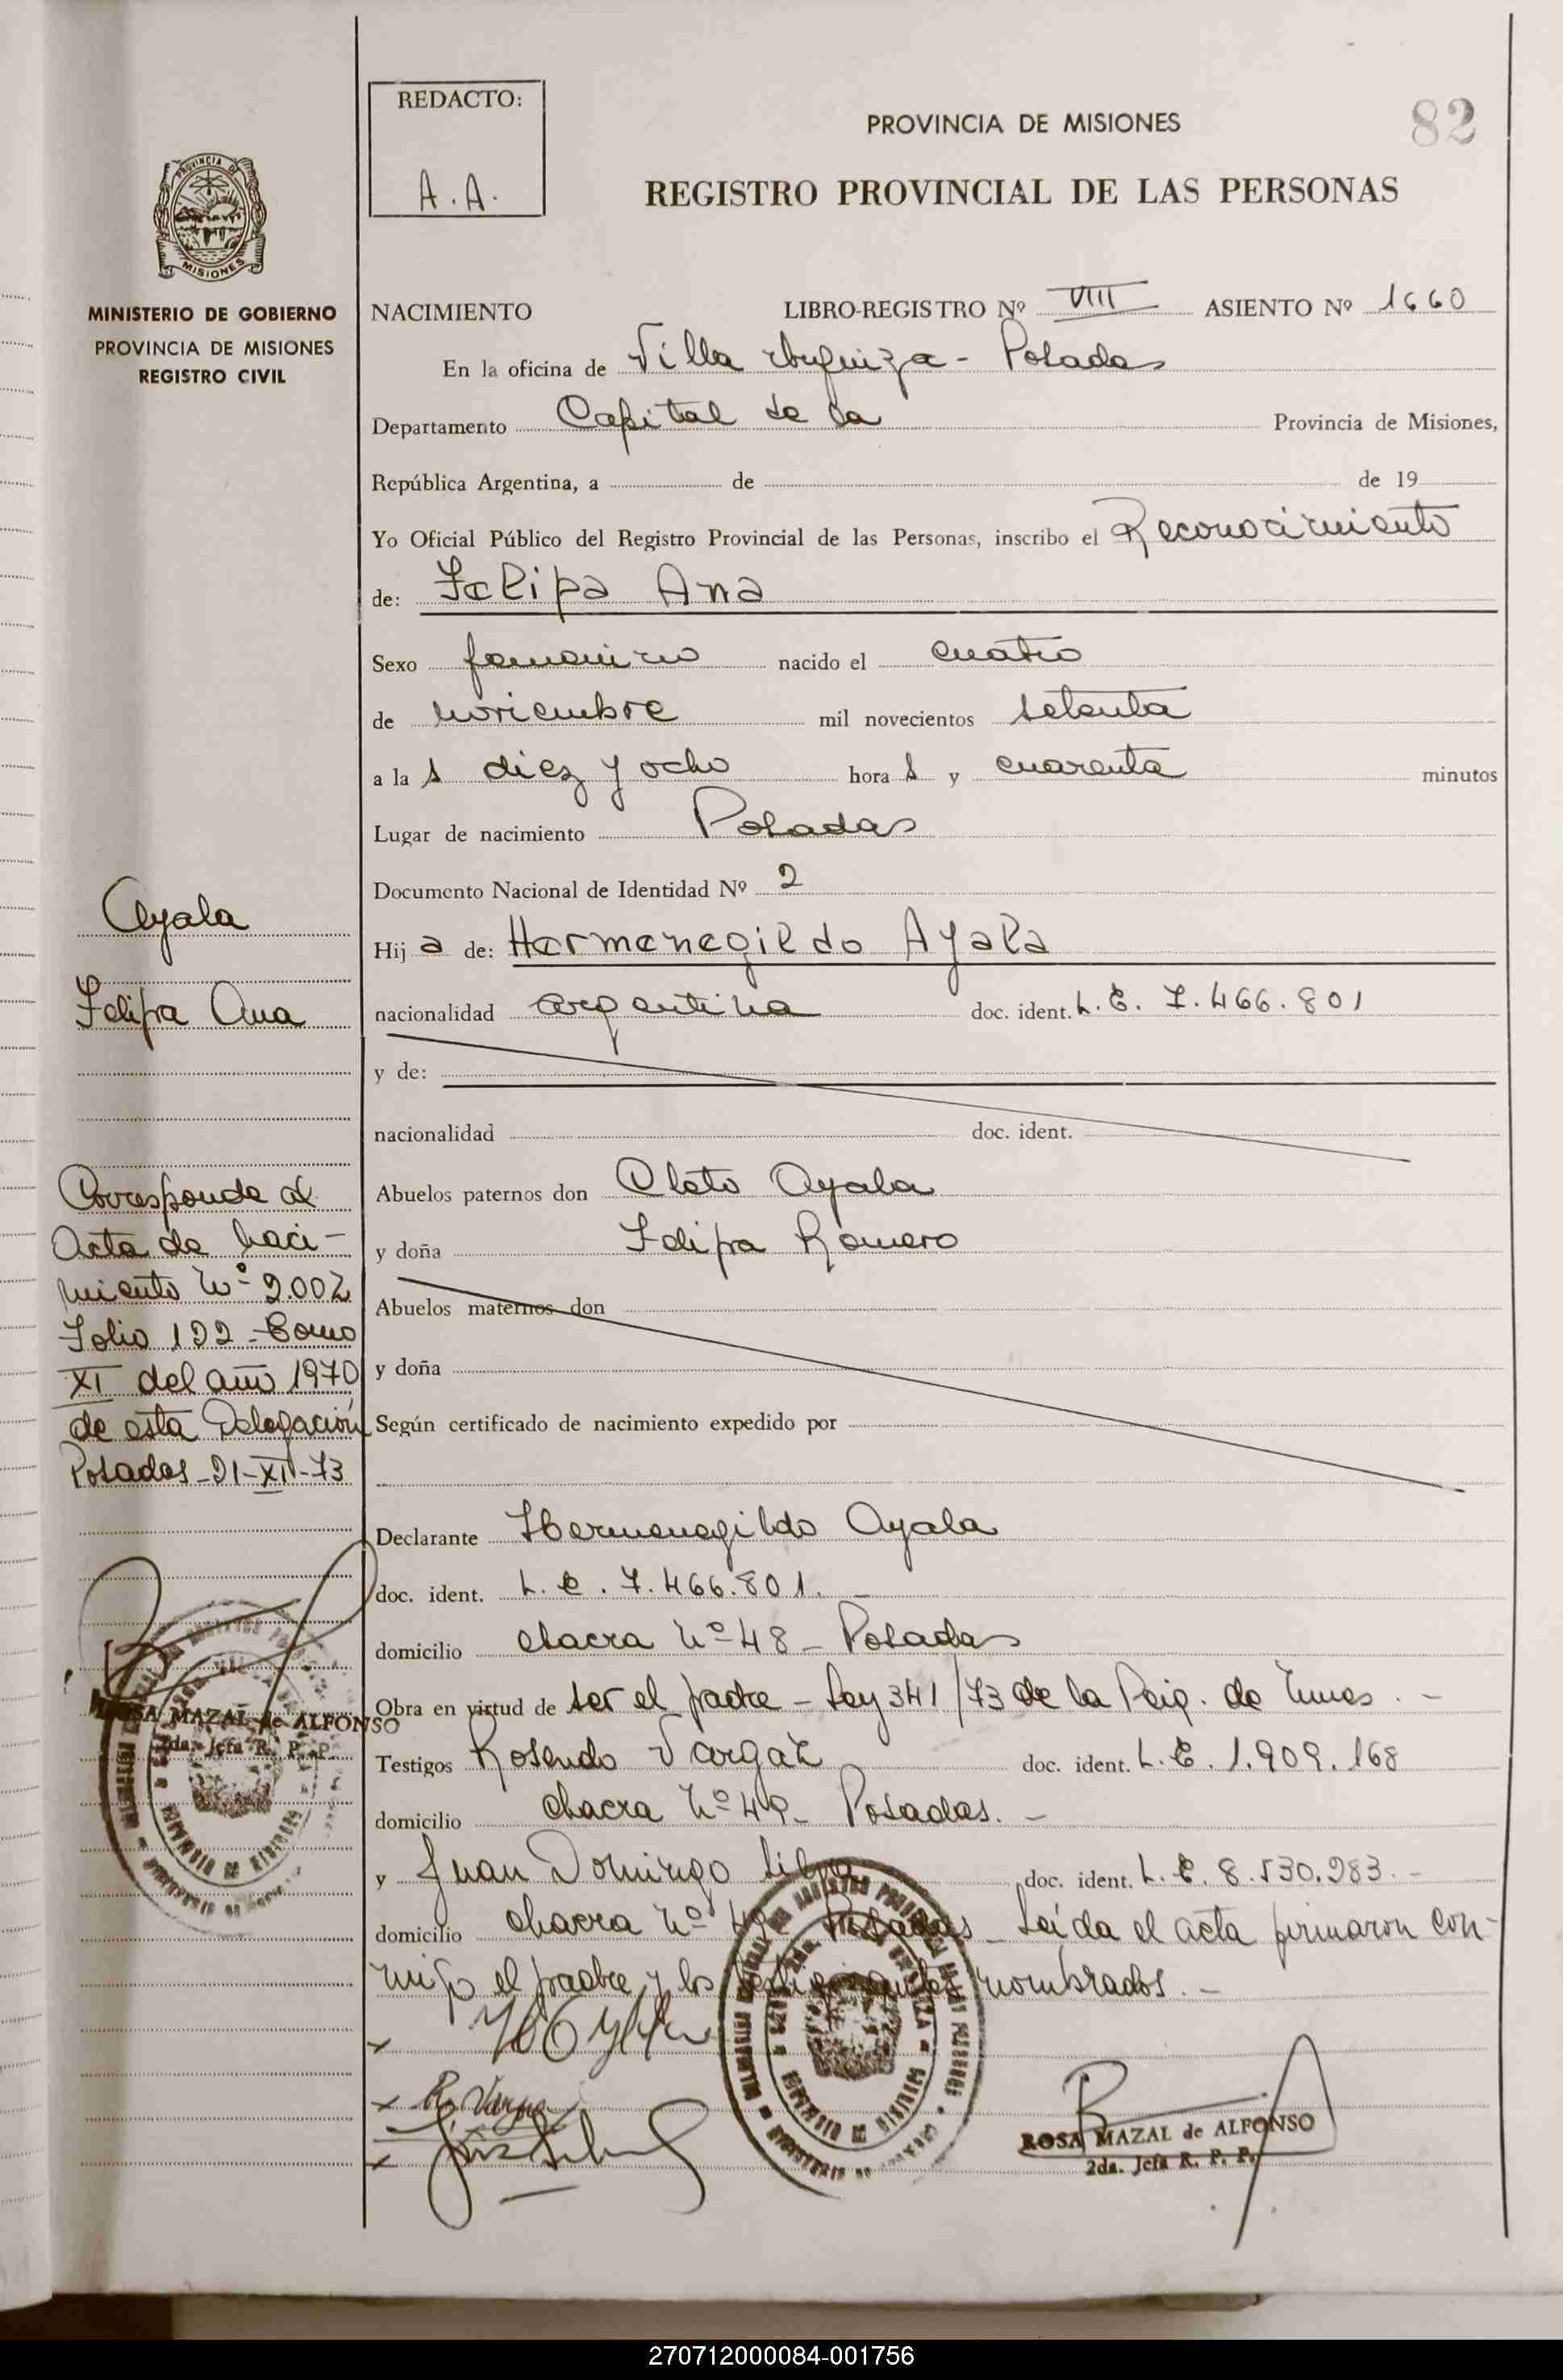 REDACTO:
A.A.
PROVINCIA DE MISIONES
82
REGISTRO PROVINCIAL DE LAS PERSONAS
PROVINCIA DE
MISIONES
MINISTERIO DE GOBIERNO
PROVINCIA DE MISIONES
REGISTRO CIVIL
NACIMIENTO LIBRO-REGISTRO Nº VIII ASIENTO Nº 1660
En la oficina de Villa Urquiza - Posadas
Departamento Capital de la Provincia de Misiones,
República Argentina, a de de 19
Yo Oficial Público del Registro Provincial de las Personas, inscribo el Reconocimiento
de: Felipa Ana
Sexo femenino nacido el cuatro
de noviembre mil novecientos setenta
a la s diez y ocho hora s y cuarenta minutos
Lugar de nacimiento Posadas
Documento Nacional de Identidad Nº 2
Hij a de: Hermenegildo Ayala
nacionalidad argentina doc. ident. L.E. 7.466.801
y de:
nacionalidad doc. ident.
Abuelos paternos don Cleto Ayala
y doña Felipa Romero
Abuelos maternos don
y doña
Según certificado de nacimiento expedido por
Declarante Hermenegildo Ayala
doc. ident. L.E. 7.466.801.
domicilio chacra Nº 48 - Posadas
Obra en virtud de ser el padre - Ley 341/73 de la Pcia. de Mnes. -
Testigos Rosendo Vargas doc. ident. L.E. 1.909.168
domicilio chacra Nº 49 - Posadas. -
y Juan Domingo Silva doc. ident. L.E. 8.530.983. -
domicilio chacra Nº 49 - Posadas - Leída el acta firmaron con-
migo el padre y los testigos antes nombrados. -
R. Vargas
ROSA MAZAL de ALFONSO
2da. Jefa R. P. P.
Ayala
Felipa Ana
Corresponde al
Acta de naci-
miento Nº 2.002
Folio 122 - Tomo
XI del año 1970
de esta Delegación
Posadas - 21-XII-73
ROSA MAZAL de ALFONSO
2da. Jefa R. P. P.
270712000084-001756